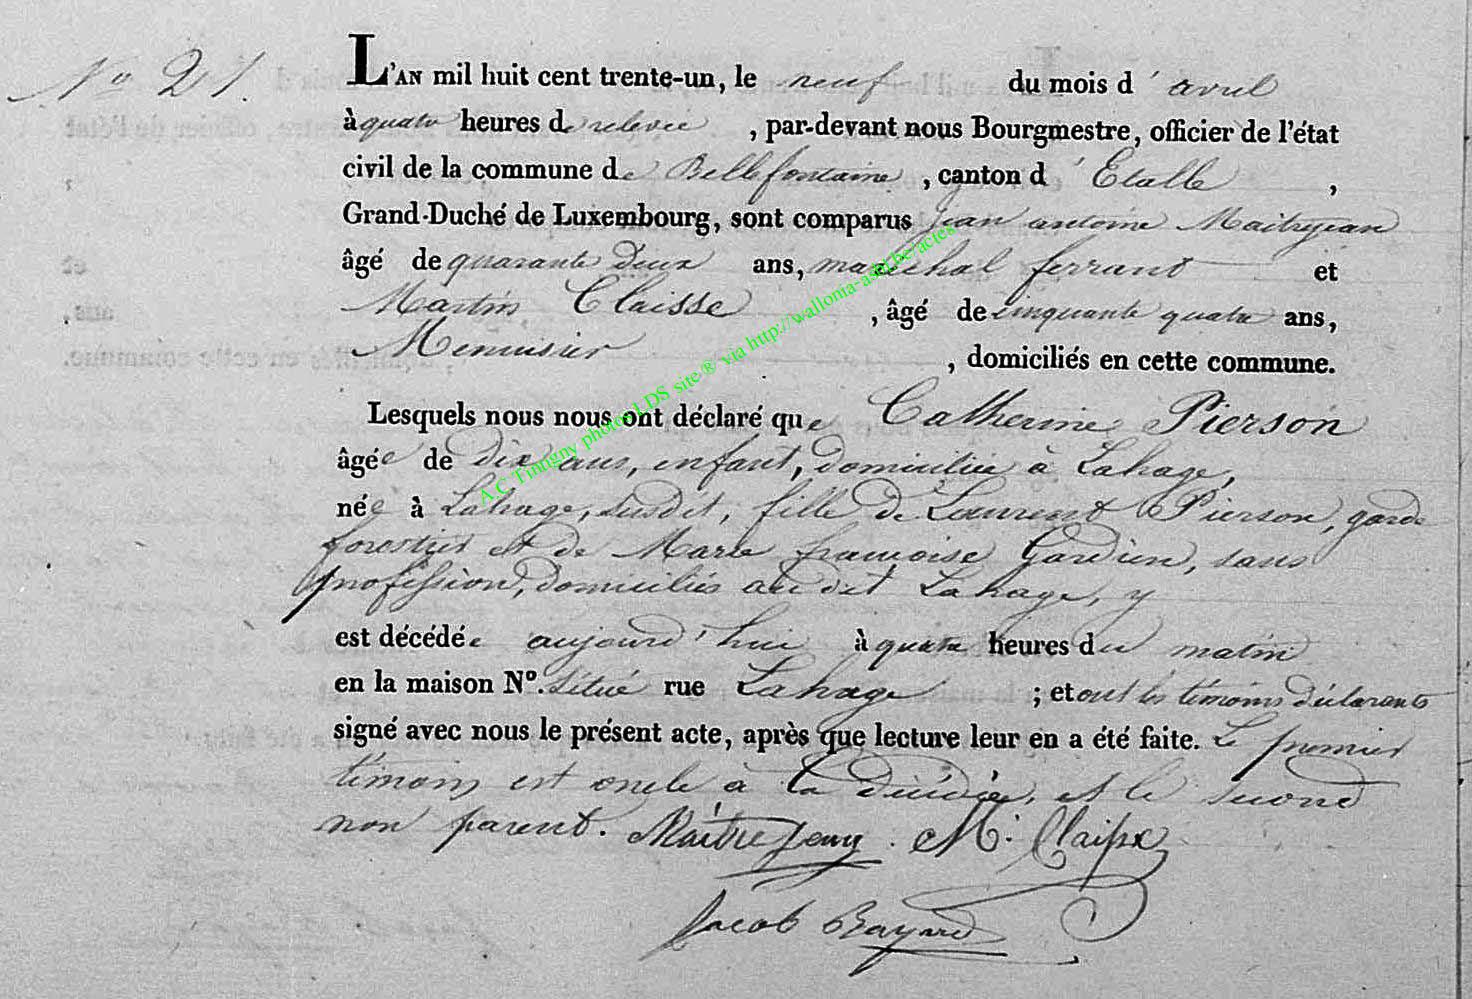 No 21.
L'AN mil huit cent trente-un, le neuf du mois d'avril
à quatre heures de relevée, par-devant nous Bourgmestre, officier de l'état
civil de la commune de Bellefontaine, canton d'Etalle,
Grand-Duché de Luxembourg, sont comparus jean antoine Maitrejean
âgé de quarante deux ans, maréchal ferrant et
Martin Claisse, âgé de cinquante quatre ans,
Menuisier, domiciliés en cette commune.
Lesquels nous nous ont déclaré que Catherine Pierson
âgée de dix ans, enfant, domiciliée à Lahage,
née à Lahage, susdit, fille de Laurent Pierson, garde
forestier et de Marie françoise Gardien, sans
profession, domiciliés au dit Lahage, y
est décédée aujourd'hui à quatre heures du matin
en la maison N°. situé rue Lahage; et ont les témoins déclarants
signé avec nous le présent acte, après que lecture leur en a été faite. Le premier
témoin est oncle à la décédée, et le second
non parent. Maitrejean. M. Claisse
Jacob Bayard
A.C Tintigny photos LDS site ® via http://wallonia-asbl.be/actes